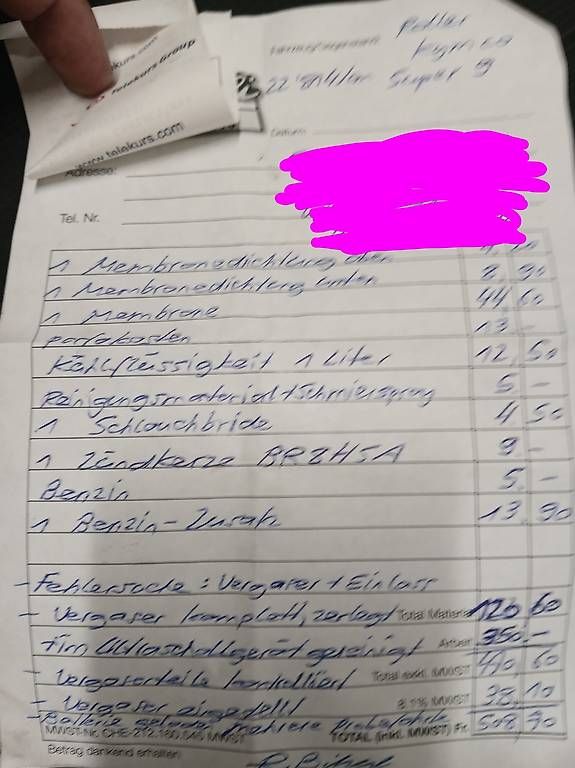 Telekurs Group
www.telekurs.com
Roller
Kymco
22'814 km Super 9
Datum
Adresse:
Tel. Nr.
1 Membranedichtung oben
1 Membranedichtung unten 8.90
1 Membrane 44.60
13.-
Kühlflüssigkeit 1 Liter 12.50
Reinigungsmaterial + Schmierspray 5.-
1 Schlauchbride 4.50
1 Zündkerze BR8HSA 9.-
Benzin 5.-
1 Benzin-Zusatz 13.90
- Fehlersuche: Vergaser + Einlass
- Vergaser komplett zerlegt Total Material 120.60
+ im Ultraschallgerät gereinigt Arbeit 350.-
- Vergaserteile kontrolliert Total exkl. MWST 470.60
- Vergaser eingestellt 8.1% MWST 38.10
- Batterie geladen, mehrere Probefahrte
MWST-Nr. CHE-212.160.546 MWST TOTAL (inkl. MWST) Fr. 508.70
Betrag dankend erhalten: